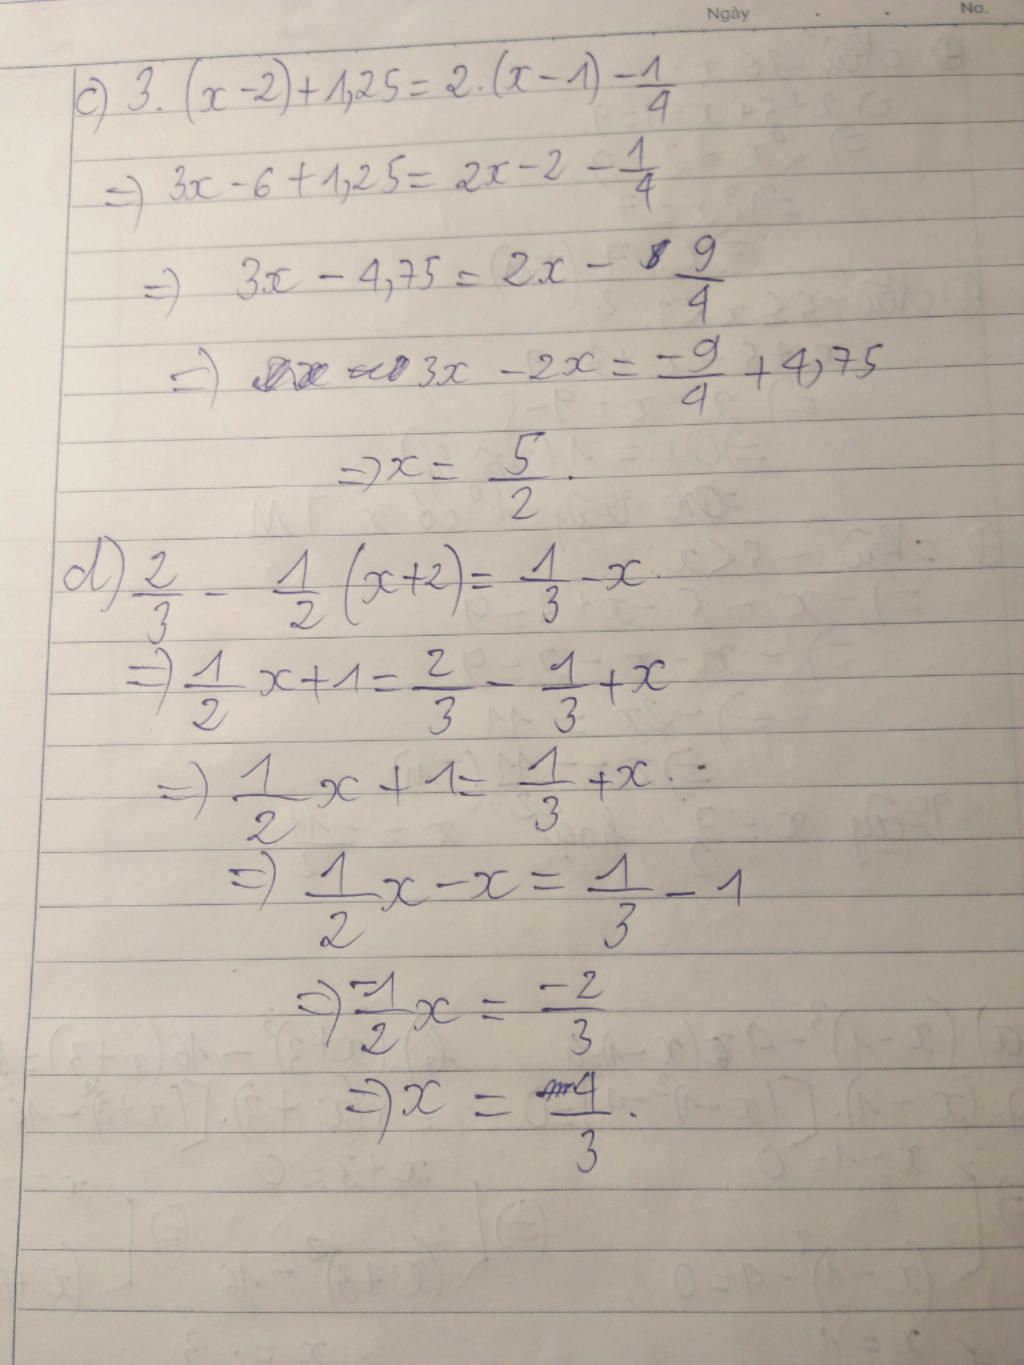 Ngày . . No.
c) 3. (x-2)+1,25 = 2.(x-1) - 1/4
=) 3x - 6 + 1,25 = 2x - 2 - 1/4
=) 3x - 4,75 = 2x - 9/4
=) 3x - 2x = -9/4 + 4,75
=) x = 5/2.
d) 2/3 - 1/2 (x+2) = 1/3 - x.
=) 1/2 x + 1 = 2/3 - 1/3 + x
=) 1/2 x + 1 = 1/3 + x.
=) 1/2 x - x = 1/3 - 1
=) -1/2 x = -2/3
=) x = 4/3.